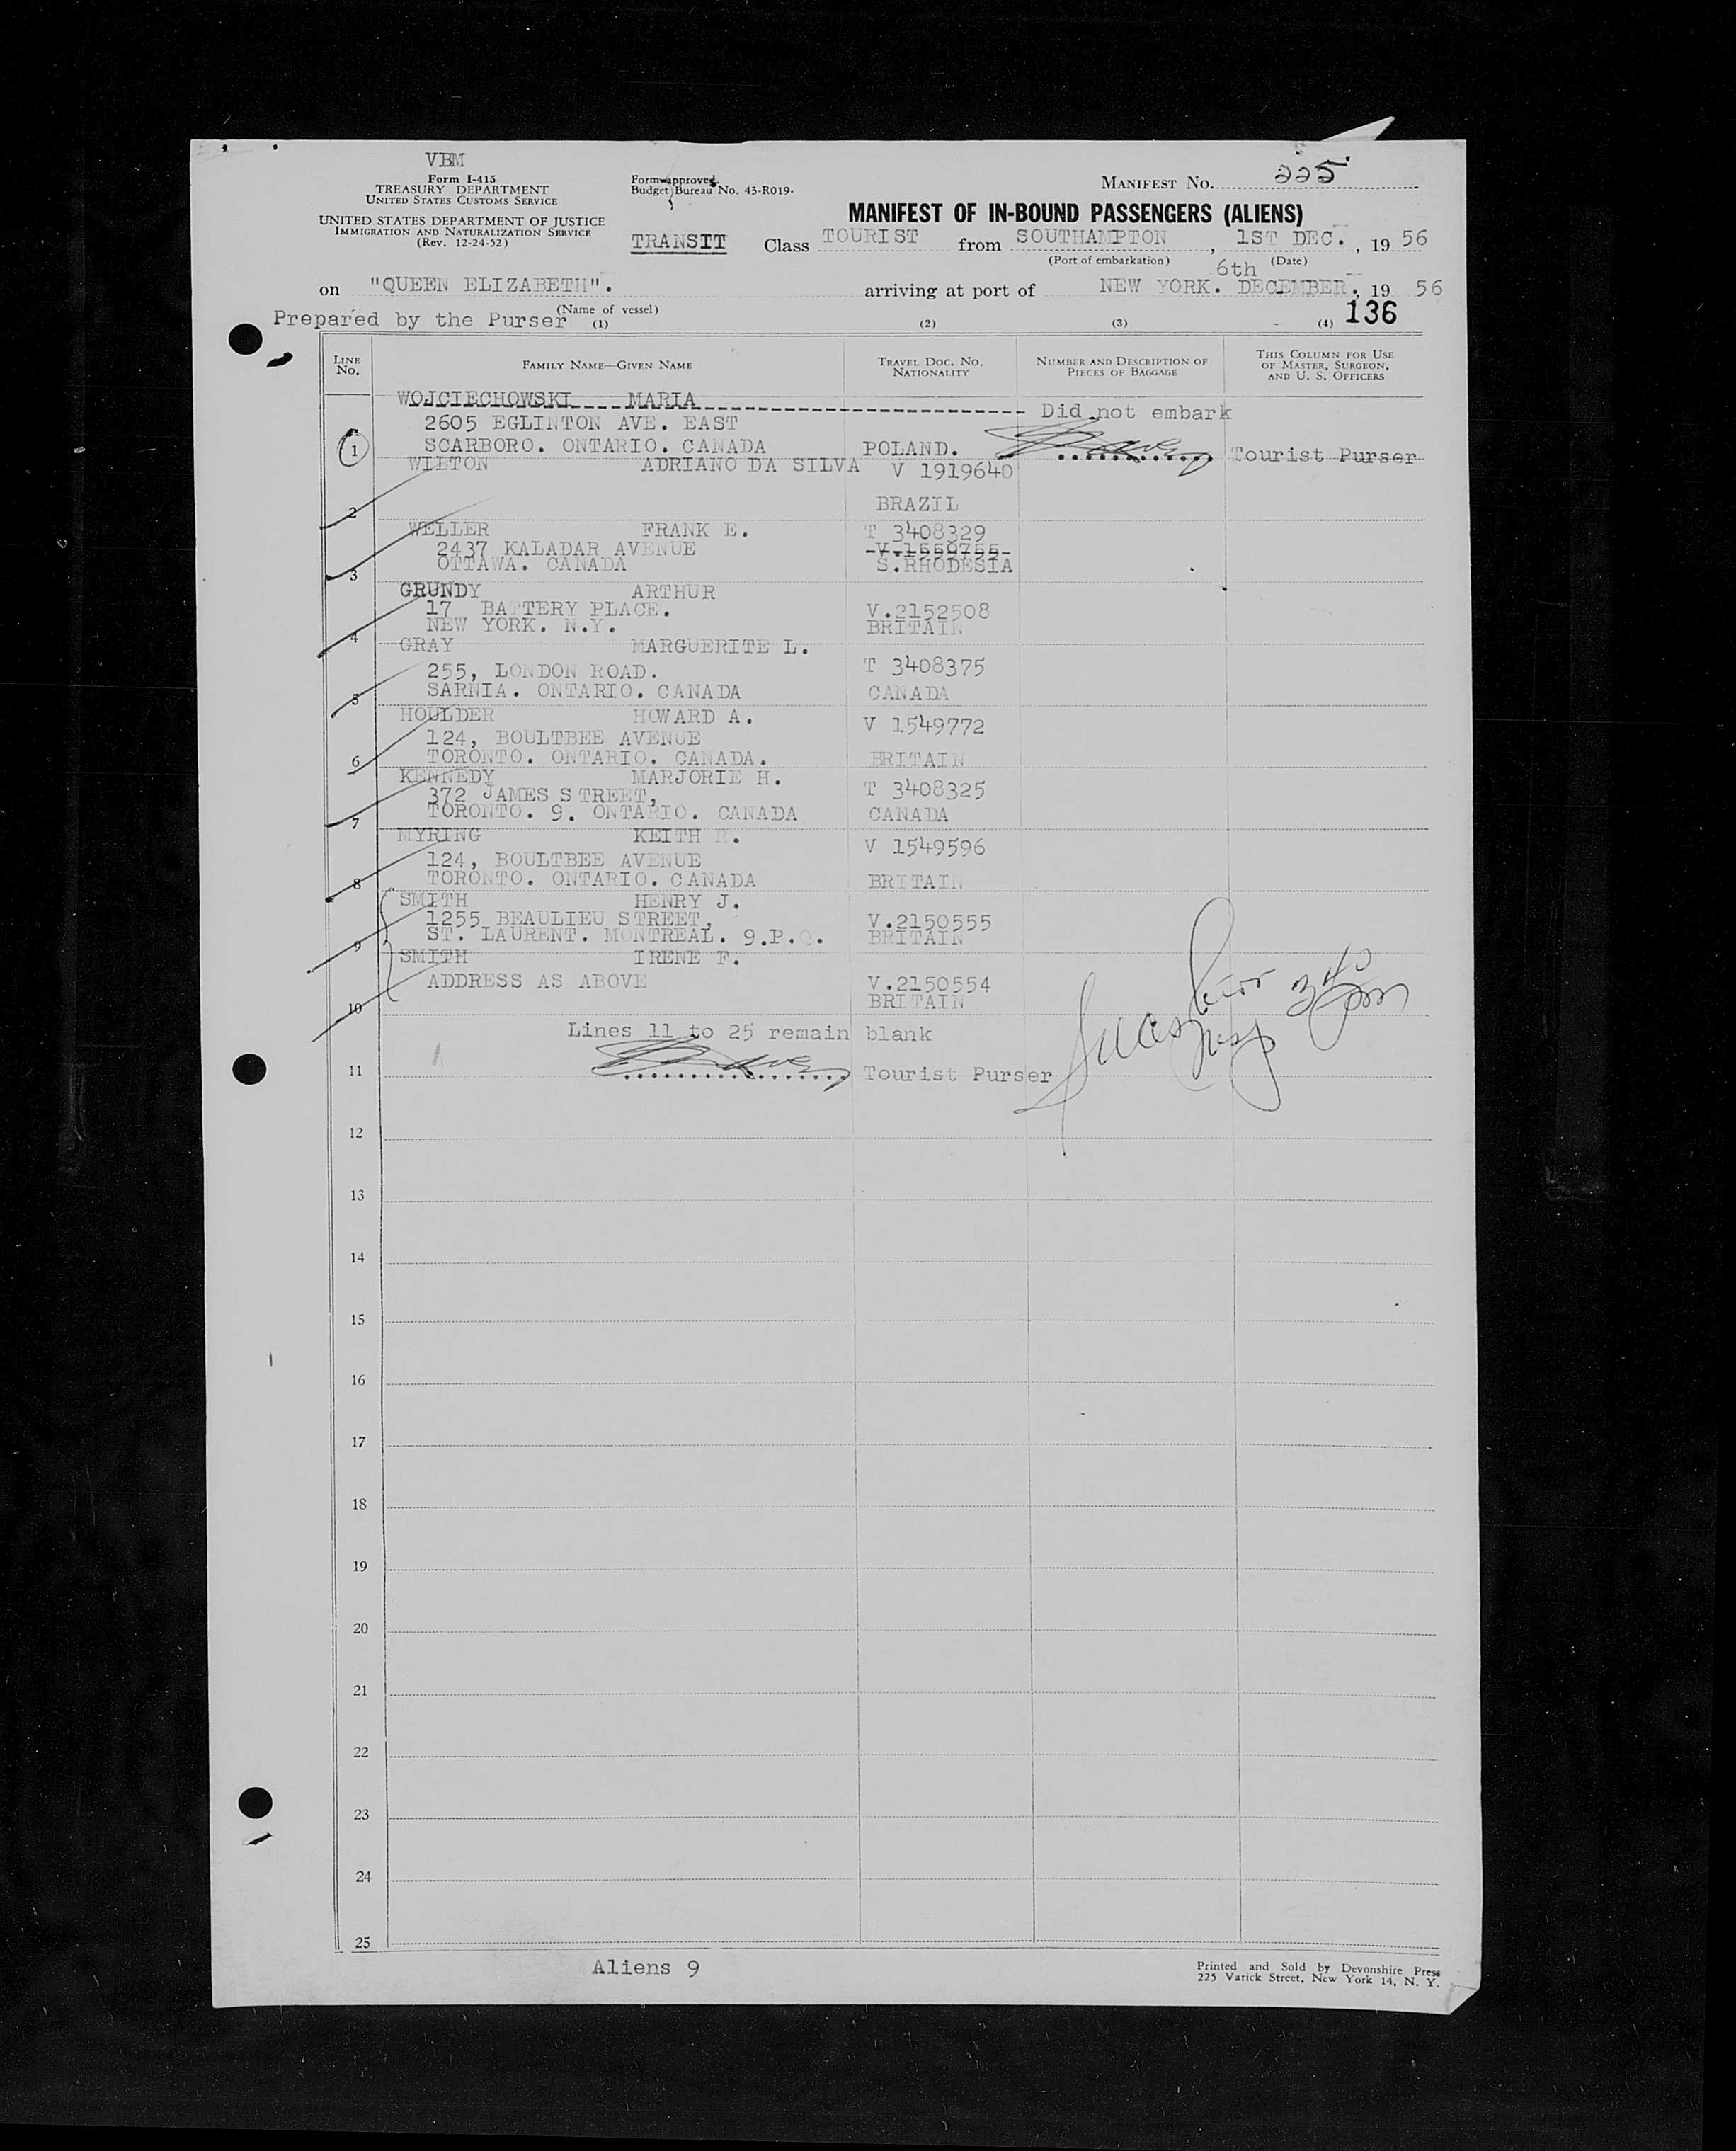 VBM
Form I-415
TREASURY DEPARTMENT
UNITED STATES CUSTOMS SERVICE
UNITED STATES DEPARTMENT OF JUSTICE
IMMIGRATION AND NATURALIZATION SERVICE
(Rev. 12-24-52)
Form approved.
Budget Bureau No. 43-R019-
MANIFEST NO. 225
MANIFEST OF IN-BOUND PASSENGERS (ALIENS)
TRANSIT Class TOURIST from SOUTHAMPTON , 1ST DEC. , 19 56
(Port of embarkation) (Date)
on "QUEEN ELIZABETH". arriving at port of NEW YORK. 6th DECEMBER. , 19 56
(Name of vessel)
Prepared by the Purser (1) (2) (3) (4) 136
LINE No. FAMILY NAME—GIVEN NAME TRAVEL DOC. NO. NATIONALITY NUMBER AND DESCRIPTION OF PIECES OF BAGGAGE THIS COLUMN FOR USE OF MASTER, SURGEON, AND U. S. OFFICERS
WOJCIECHOWSKI MARIA Did not embark
2605 EGLINTON AVE. EAST
1 SCARBORO. ONTARIO. CANADA POLAND. Tourist Purser
WILTON ADRIANO DA SILVA V 1919640
2 BRAZIL
WELLER FRANK E. T 3408329
2437 KALADAR AVENUE V.1550755
3 OTTAWA. CANADA S.RHODESIA
GRUNDY ARTHUR
17 BATTERY PLACE. V.2152508
4 NEW YORK. N.Y. BRITAIN
GRAY MARGUERITE L.
255, LONDON ROAD. T 3408375
5 SARNIA. ONTARIO. CANADA CANADA
HOULDER HOWARD A. V 1549772
124, BOULTBEE AVENUE
6 TORONTO. ONTARIO. CANADA. BRITAIN
KENNEDY MARJORIE H. T 3408325
372 JAMES STREET,
7 TORONTO. 9. ONTARIO. CANADA CANADA
MYRING KEITH R. V 1549596
124, BOULTBEE AVENUE
8 TORONTO. ONTARIO. CANADA BRITAIN
SMITH HENRY J.
1255 BEAULIEU STREET, V.2150555
9 ST. LAURENT. MONTREAL. 9.P.Q. BRITAIN
SMITH IRENE F.
ADDRESS AS ABOVE V.2150554
10 BRITAIN
Lines 11 to 25 remain blank
11 Tourist Purser
12
13
14
15
16
17
18
19
20
21
22
23
24
25
Aliens 9
Printed and Sold by Devonshire Press
225 Varick Street, New York 14, N. Y.